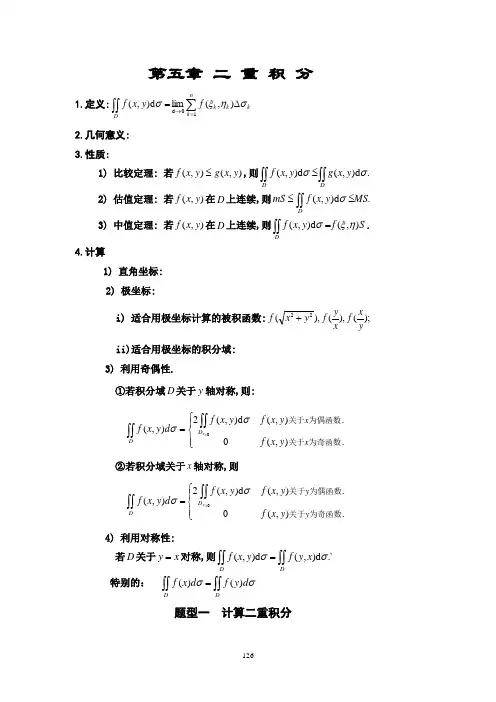 第五章 二 重 积 分
1.定义: $\iint\limits_D f(x,y)\mathrm{d}\sigma=\lim\limits_{d\to 0}\sum\limits_{k=1}^{n}f(\xi_k,\eta_k)\Delta\sigma_k$
2.几何意义:
3.性质:
1) 比较定理: 若$f(x,y)\le g(x,y)$,则$\iint\limits_D f(x,y)\mathrm{d}\sigma\le\iint\limits_D g(x,y)\mathrm{d}\sigma.$
2) 估值定理: 若$f(x,y)$在$D$上连续,则$mS\le\iint\limits_D f(x,y)\mathrm{d}\sigma\le MS.$
3) 中值定理: 若$f(x,y)$在$D$上连续,则$\iint\limits_D f(x,y)\mathrm{d}\sigma=f(\xi,\eta)S$.
4.计算
1) 直角坐标:
2) 极坐标:
i) 适合用极坐标计算的被积函数: $f(\sqrt{x^2+y^2}),f(\frac{y}{x}),f(\frac{x}{y});$
ii)适合用极坐标的积分域:
3) 利用奇偶性.
①若积分域$D$关于$y$轴对称,则:
$\iint\limits_D f(x,y)d\sigma=\begin{cases}2\iint\limits_{D_{x\ge 0}}f(x,y)\mathrm{d}\sigma & f(x,y)关于x为偶函数.\\ 0 & f(x,y)关于x为奇函数.\end{cases}$
②若积分域关于$x$轴对称,则
$\iint\limits_D f(x,y)d\sigma=\begin{cases}2\iint\limits_{D_{y\ge 0}}f(x,y)\mathrm{d}\sigma & f(x,y)关于y为偶函数.\\ 0 & f(x,y)关于y为奇函数.\end{cases}$
4) 利用对称性:
若$D$关于$y=x$对称,则$\iint\limits_D f(x,y)\mathrm{d}\sigma=\iint\limits_D f(y,x)\mathrm{d}\sigma.$`
特别的: $\iint\limits_D f(x)d\sigma=\iint\limits_D f(y)d\sigma$
题型一 计算二重积分
126